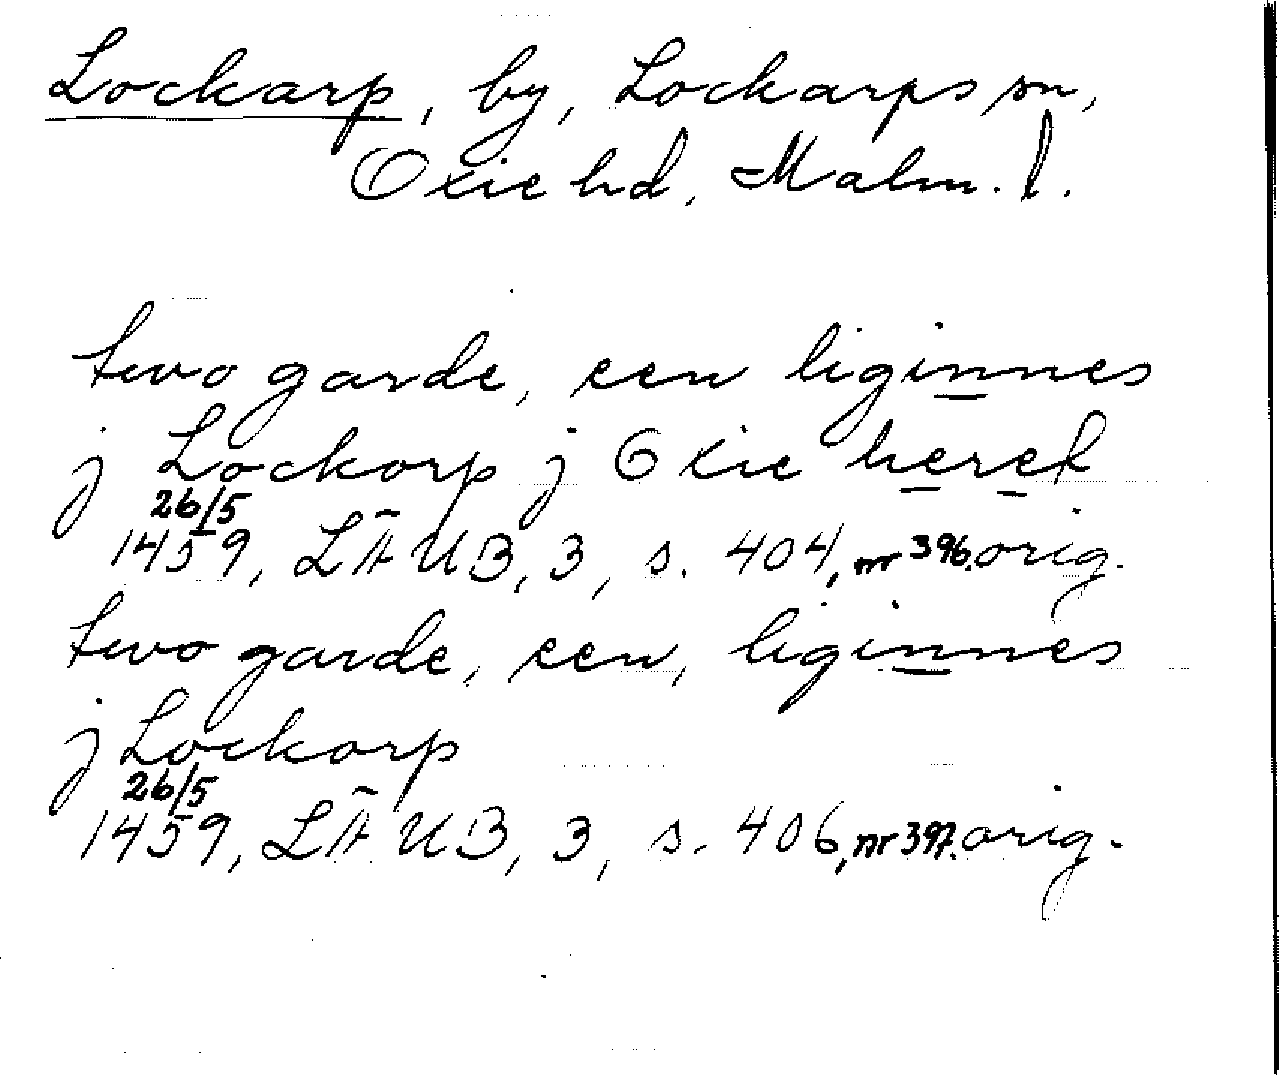 Lockarp, by, Lockarps sn,
Oxie hd, Malm. l.
two garde, een liginnes
j Lockorp j Oxie heret
26/5
1459, LÄUB, 3, s. 404, nr 396. orig.
two garde, een, liginnes
j Lockorp
26/5
1459, LÄUB, 3, s. 406, nr 397. orig.